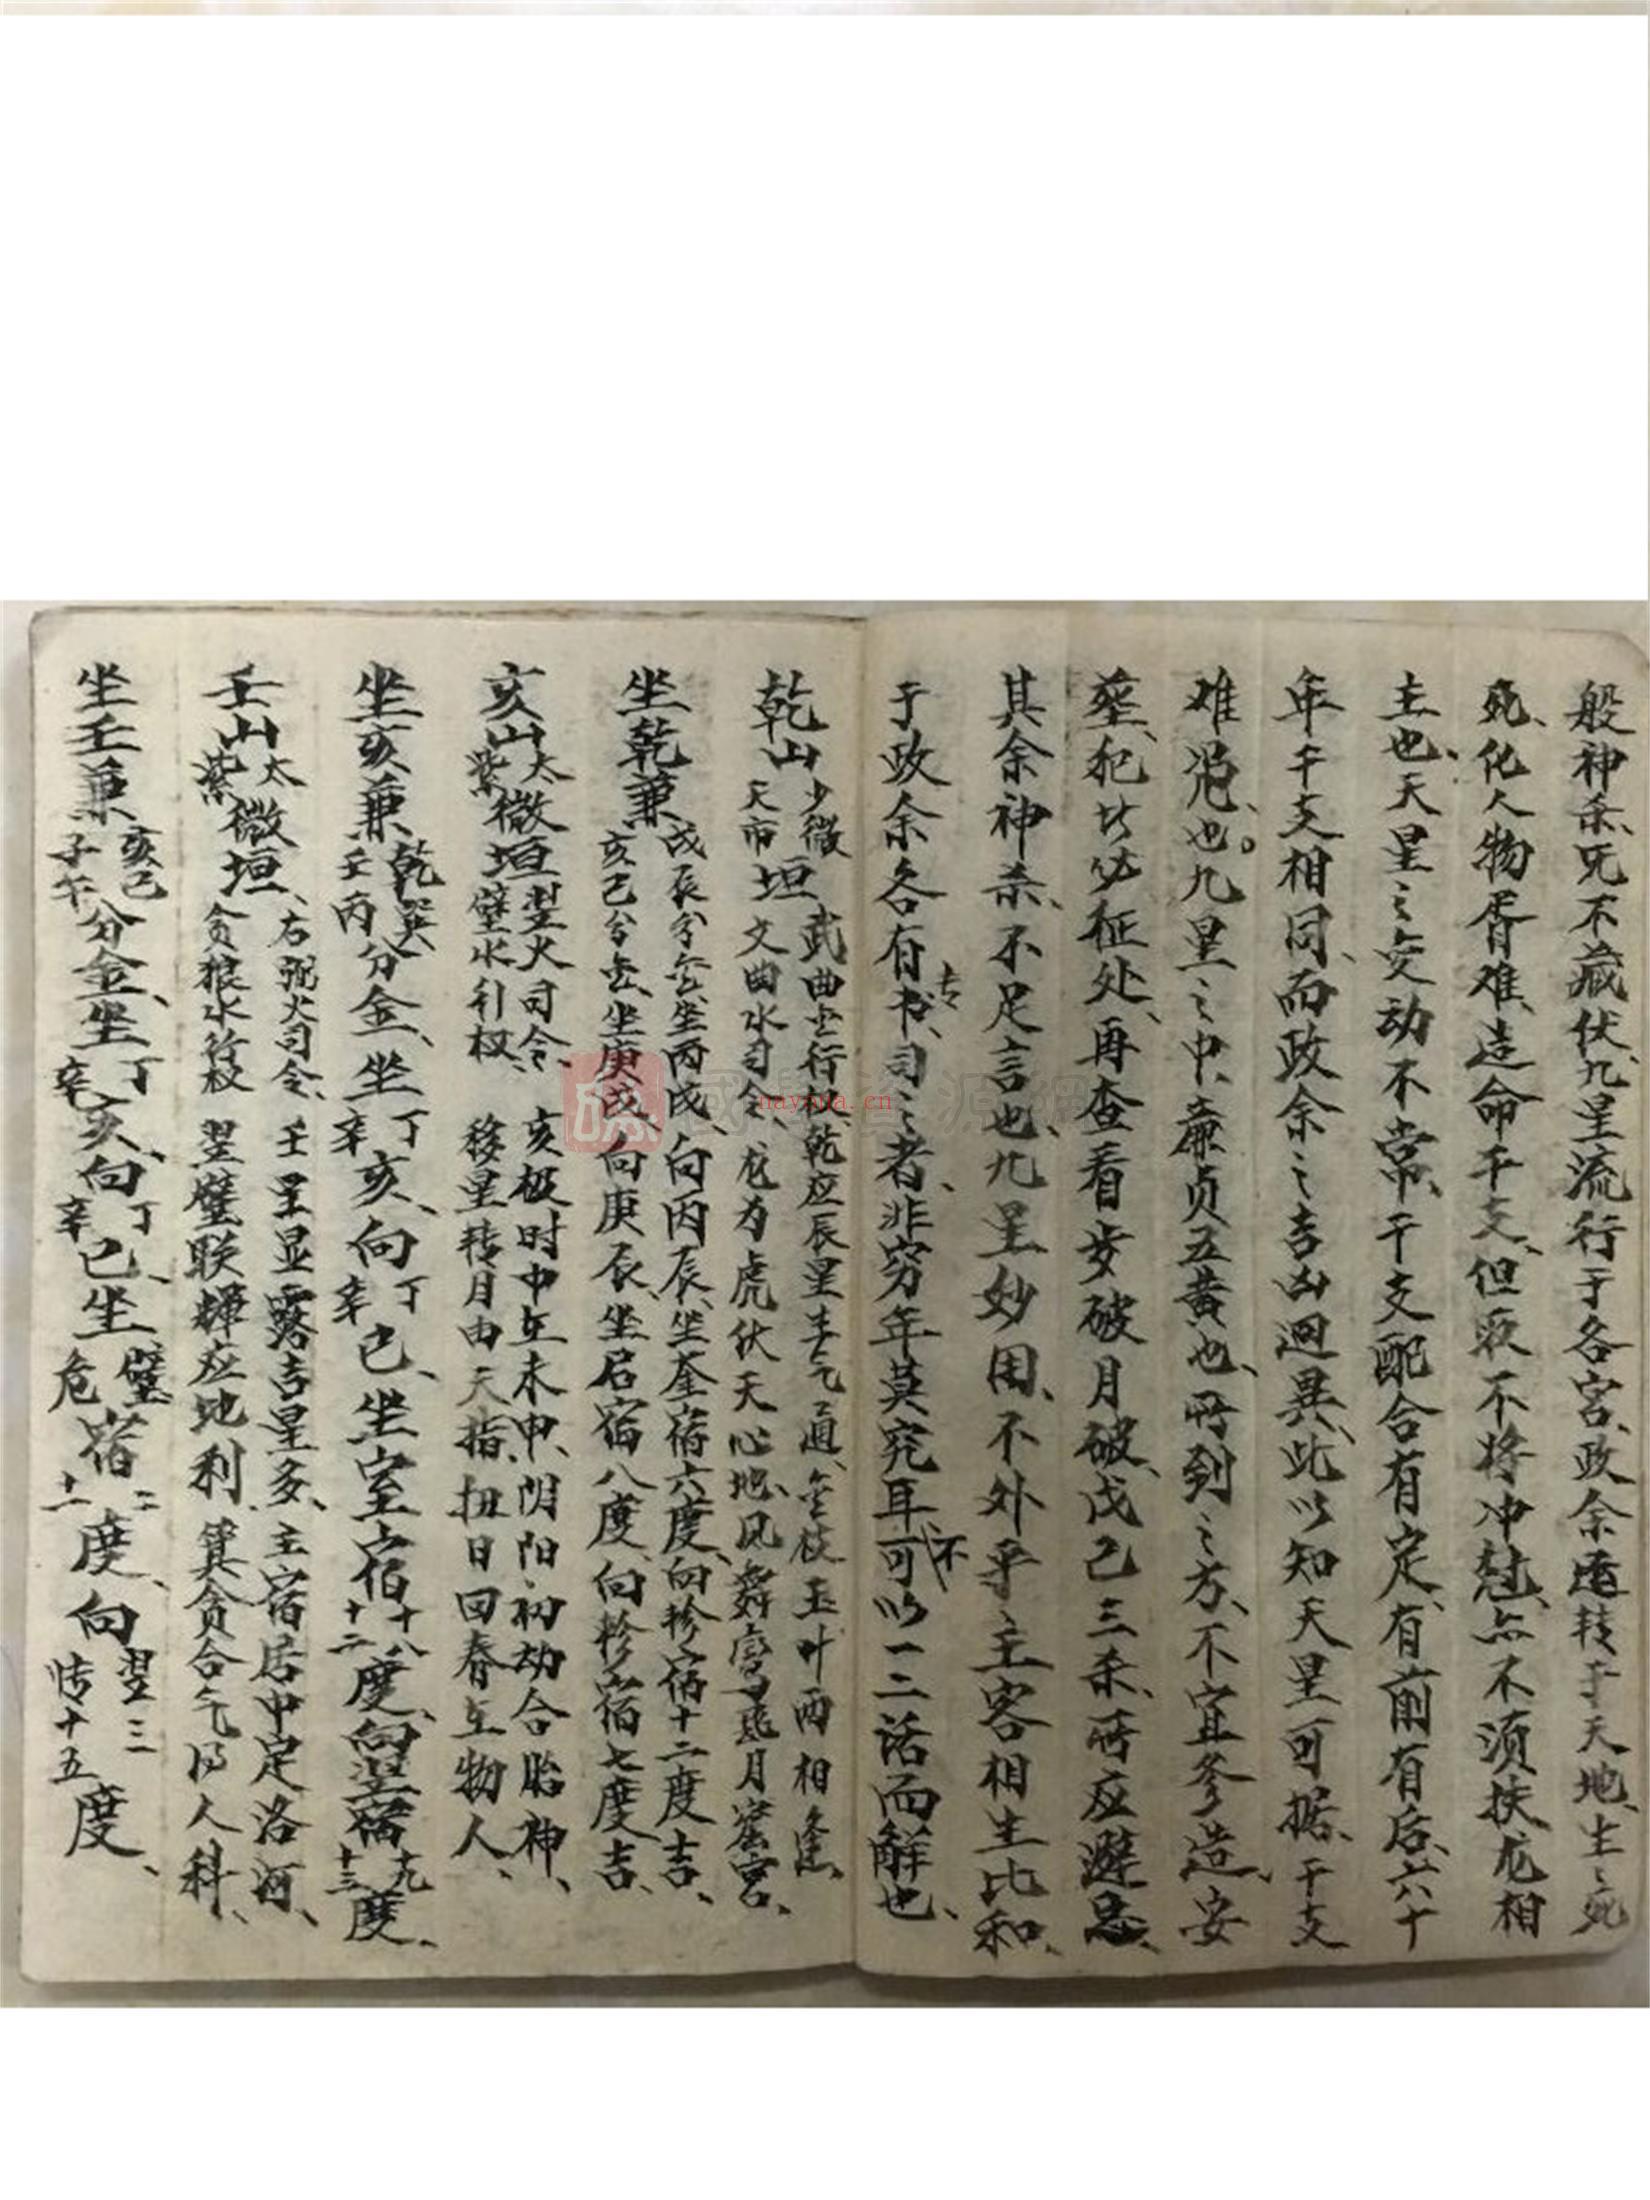 般神杀、咒不藏伏、九星流行于各宫、政余运转于天地、生之死
死、化人物胥难、造命干支、但取不将冲克、亦不须扶龙相
主也、天星之变动不常、干支配合有定、有前有后、六十
年干支相同、而政余之吉凶迥异、此以知天星可据、干支
难凭也。九星之中、廉贞五黄也、所到之方、不宜修造、安
葬、犯此必征处、再查看岁破月破、戊己三杀、所应避忌、
其余神杀、不足言也、九星妙用、不外乎主客相生比和、
于政余各有专书、司之者、非穷年莫究耳、不可以一二话而解也、
乾山 少微天市垣 武曲金行权、乾应辰星生气通、金枝玉叶两相逢、
文曲水司令、龙为虎伏天心地、凤舞鸾飞月窟宫、
坐乾兼 戌辰分金、坐丙戌、向丙辰、坐奎宿六度、向轸宿十二度吉、
亥巳分金、坐庚戌、向庚辰、坐启宿八度、向轸宿七度吉、
亥山 太紫微垣 翌火司令、亥极时中在未申、阴阳初动合胎神、
壁水利权、移星转月由天指、扭日回春在物人、
坐亥兼 乾巽壬丙分金、坐丁辛亥、向丁辛巳、坐室宿十八十二度、向翌宿十九十三度、
壬山 太紫微垣、右弼火司令、壬星显露吉星多、主宿居中定洛河、
贪狼水行权 翌壁联辉应地利、箕贪合气得人科、
坐壬兼 亥巳子午分金、坐丁辛亥、向丁辛巳、坐壁危宿二十一度、向翌三张十五度、
nayona.cn